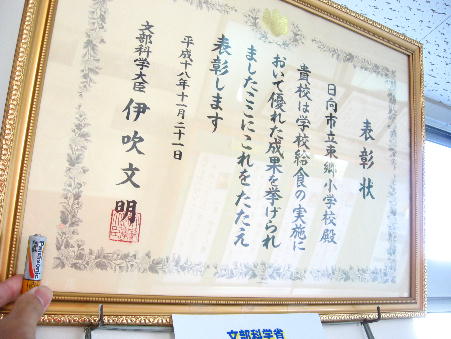 表彰状
日向市立東郷小学校殿
貴校は学校給食の実施に
おいて優れた成果を挙げられ
ましたここにこれをたたえ
表彰します
平成十八年十一月二十一日
文部科学大臣 伊吹文明
Panasonic
文部科学省